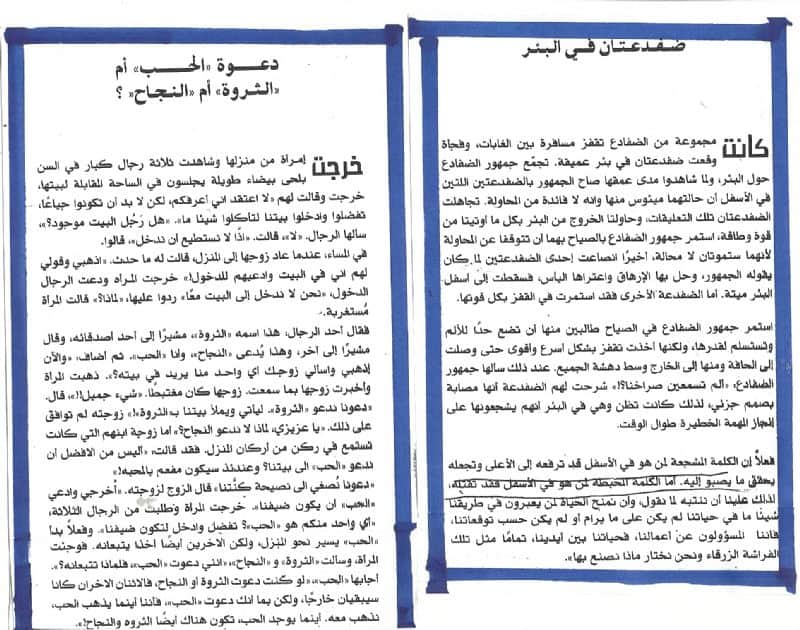 ضفدعتان في البئر
كانت مجموعة من الضفادع تقفز مسافرة بين الغابات، وفجأة
وقعت ضفدعتان في بئر عميقة. تجمّع جمهور الضفادع
حول البئر، ولما شاهدوا مدى عمقها صاح الجمهور بالضفدعتين اللتين
في الأسفل أن حالتهما ميئوس منها وانه لا فائدة من المحاولة. تجاهلت
الضفدعتان تلك التعليقات، وحاولتا الخروج من البئر بكل ما اوتيتا من
قوة وطاقة، استمر جمهور الضفادع بالصياح بهما ان تتوقفا عن المحاولة
لأنهما ستموتان لا محالة، أخيرًا انصاعت إحدى الضفدعتين لما كان
يقوله الجمهور، وحل بها الإرهاق واعتراها اليأس، فسقطت إلى أسفل
البئر ميتة. أما الضفدعة الأخرى فقد استمرت في القفز بكل قوتها.
استمر جمهور الضفادع في الصياح طالبين منها ان تضع حدًا للألم
وتستسلم لقدرها، ولكنها أخذت تقفز بشكل أسرع وأقوى حتى وصلت
إلى الحافة ومنها إلى الخارج وسط دهشة الجميع. عند ذلك سألها جمهور
الضفادع، «ألم تسمعين صراخنا؟!» شرحت لهم الضفدعة أنها مصابة
بصمم جزئي، لذلك كانت تظن وهي في البئر انهم يشجعونها على
إنجاز المهمة الخطيرة طوال الوقت.
فعلاً إن الكلمة المشجعة لمن هو في الأسفل قد ترفعه إلى الأعلى وتجعله
يحقق ما يصبو إليه. أما الكلمة المحبطة لمن هو في الأسفل فقد تقتله،
لذلك علينا أن ننتبه لما نقول، وأن نمنح الحياة لمن يعبرون في طريقنا
شيئًا ما في حياتنا لم يكن على ما يرام أو لم يكن حسب توقعاتنا،
فاننا المسؤولون عن أعمالنا، فحياتنا بين أيدينا، تمامًا مثل تلك
الفراشة الزرقاء ونحن نختار ماذا نصنع بها».
دعــوة «الحــب» أم
«الثروة» أم «النجاح» ؟
خرجت إمرأة من منزلها وشاهدت ثلاثة رجال كبار في السن
بلحى بيضاء طويلة يجلسون في الساحة المقابلة لبيتها،
خرجت وقالت لهم «لا اعتقد اني أعرفكم، لكن لا بد أن تكونوا جياعًا،
تفضلوا وادخلوا بيتنا لتأكلوا شيئا ما». «هل رَجُل البيت موجود؟»،
سألها الرجال. «لا»، قالت. «اذًا لا نستطيع ان ندخل»، قالوا.
في المساء، عندما عاد زوجها إلى المنزل، قالت له ما حدث. «اذهبي وقولي
لهم اني في البيت وادعيهم للدخول!» خرجت المراه ودعت الرجال
الدخول، «نحن لا ندخل إلى البيت معًا» ردوا عليها، «لماذا؟» قالت المرأة
مُستغربة.
فقال أحد الرجال، هذا اسمه «الثروة»، مشيرًا إلى أحد اصدقائه، وقال
مشيرًا إلى آخر، وهذا يُدعى «النجاح»، وانا «الحب». ثم اضاف «والآن
إذهبي واسألي زوجك اي واحد منا يريد في بيته؟». ذهبت المرأة
وأخبرت زوجها بما سمعت. زوجها كان مغتبطًا. «شيء جميل!!»، قال.
«دعونا ندعو «الثروة». ليأتي ويملأ بيتنا بـ«الثروة»!» زوجته لم توافق
على ذلك. «يا عزيزي، لماذا لا ندعو النجاح؟» اما زوجة ابنهم التي كانت
تستمع في ركن من أركان المنزل. فقد قالت، «اليس من الافضل أن
ندعو «الحب» الى بيتنا؟ وعندئذ سيكون مفعم بالمحبه!»
«دعونا نُصغي الى نصيحة كَنَّتنا» قال الزوج لزوجته. «أخرجي وادعي
«الحب» ان يكون ضيفنا». خرجت المرأة وطلبت من الرجال الثلاثة،
«أي واحد منكم هو «الحب»؟ تفضل وادخل لتكون ضيفنا». وفعلاً بدأ
«الحب» يسير نحو المنزل، ولكن الآخرين ايضًا أخذا يتبعانه. فوجئت
المرأة، وسألت «الثروة» و «النجاح»، «انني دعوت «الحب»، فلماذا تتبعانه؟».
أجابها «الحب»، «لو كنت دعوت الثروة او النجاح، فالاثنان الآخران كانا
سيبقيان خارجًا، ولكن بما انك دعوت «الحب»، فأننا أينما يذهب الحب،
نذهب معه. أينما يوجد الحب، تكون هناك أيضًا الثروه والنجاح!».